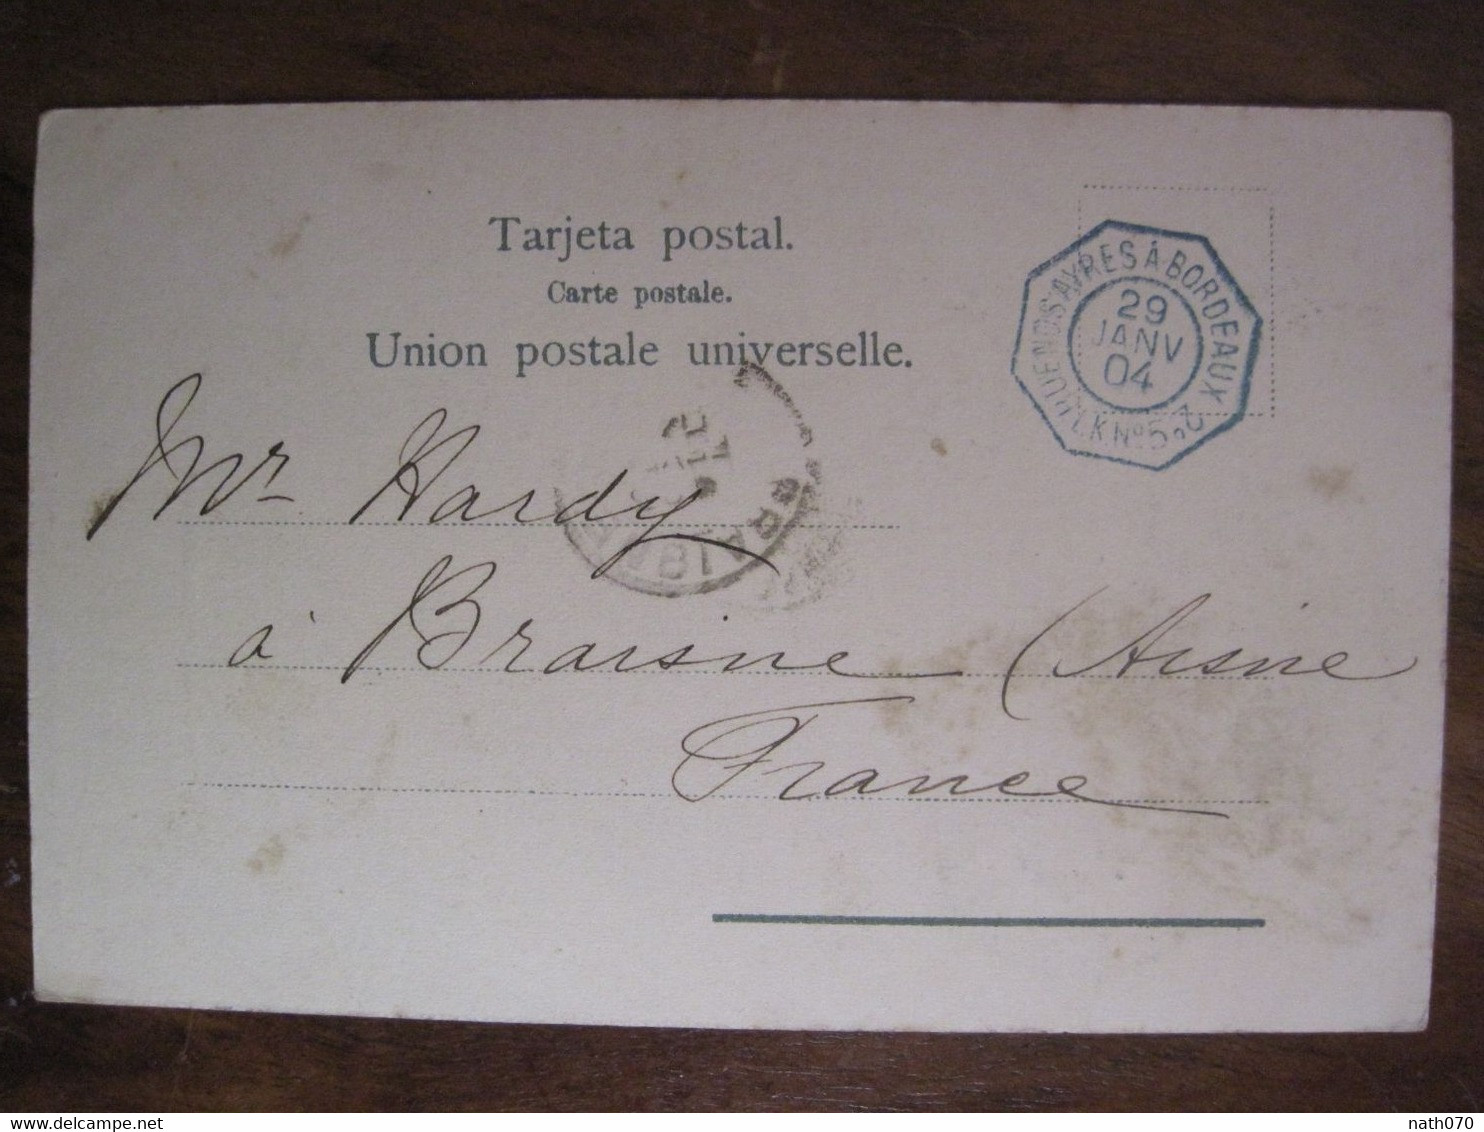 Tarjeta postal.
Carte postale.
Union postale universelle.
BUENOS AYRES À BORDEAUX
29
JANV
04
L.K. Nº 5
Mr Hardy
à Braisne (Aisne
France
nath070